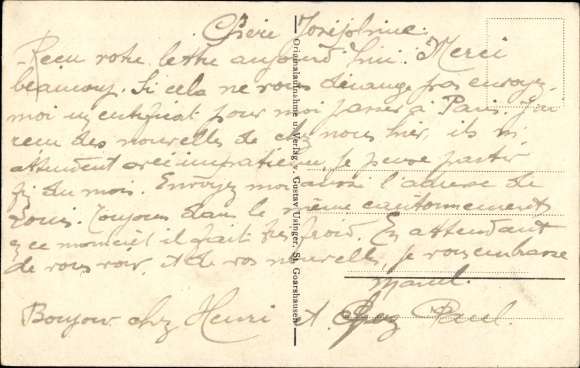 Chère Joséphine
Reçu votre lettre aujourd'hui. Merci
beaucoup. Si cela ne vous dérange pas envoyez-
moi un certificat pour moi passer à Paris. J'ai
reçu des nouvelles de chez nous hier, ils m'
attendent avec impatience, je pense partir
fin du mois. Envoyez moi aussi l'adresse de
Louis. Toujours dans le même cantonnement
en ce moment il fait froid. En attendant
de vous voir, et de vos nouvelles, je vous embrasse
Marcel.
Bonjour chez Henri et chez Paul.
Originalaufnahme u. Verlag v. Gustav Usinger, St. Goarshausen